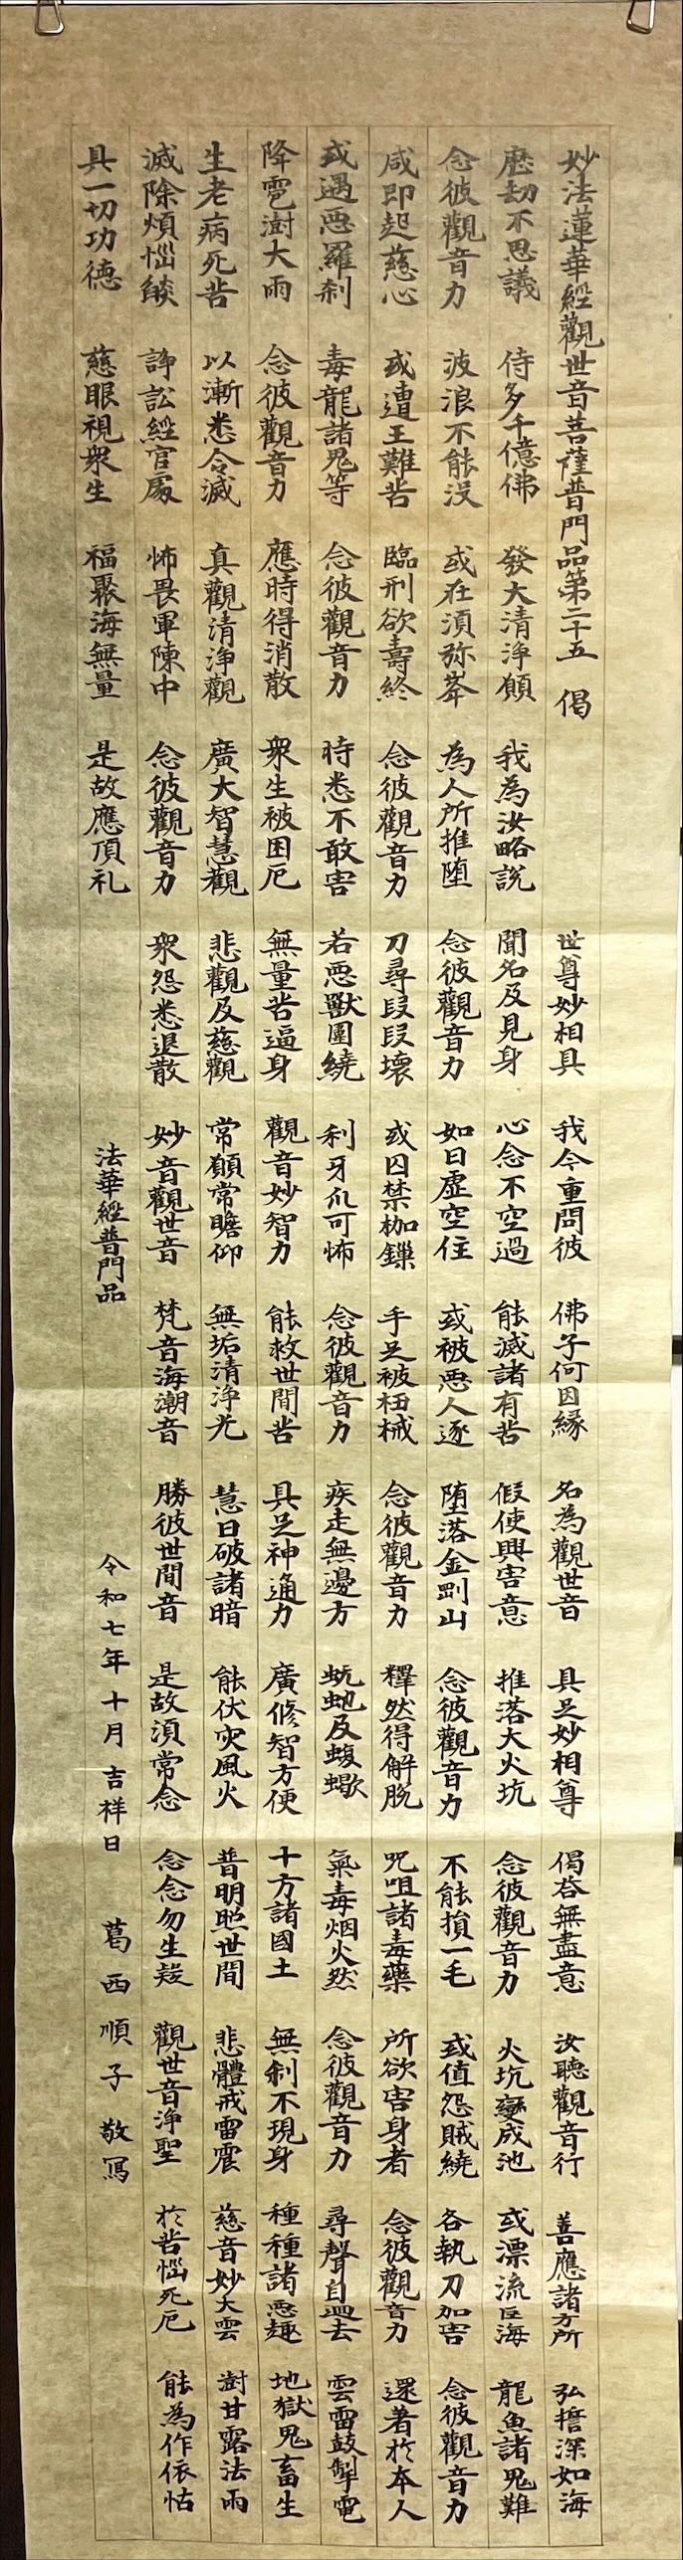 妙法蓮華經觀世音菩薩普門品第二十五 偈 世尊妙相具 我今重問彼 佛子何因縁 名為觀世音 具足妙相尊 偈荅無盡意 汝聽觀音行 善應諸方所 弘誓深如海
歴劫不思議 侍多千億佛 發大清浄願 我為汝略説 聞名及見身 心念不空過 能滅諸有苦 假使興害意 推落大火坑 念彼觀音力 火坑變成池 或漂流巨海 龍魚諸鬼難
念彼觀音力 波浪不能没 或在須弥峯 為人所推堕 念彼觀音力 如日虚空住 或被悪人逐 堕落金剛山 念彼觀音力 不能損一毛 或値怨賊繞 各執刀加害 念彼觀音力
咸即起慈心 或遭王難苦 臨刑欲壽終 念彼觀音力 刀尋段段壊 或囚禁枷鏁 手足被杻械 念彼觀音力 釋然得解脱 呪咀諸毒藥 所欲害身者 念彼觀音力 還著於本人
或遇悪羅刹 毒龍諸鬼等 念彼觀音力 時悉不敢害 若悪獣圍繞 利牙爪可怖 念彼觀音力 疾走無邊方 蚖虵及蝮蠍 氣毒烟火然 念彼觀音力 尋聲自迴去 雲雷鼓掣電
降雹澍大雨 念彼觀音力 應時得消散 衆生被困厄 無量苦逼身 觀音妙智力 能救世間苦 具足神通力 廣修智方便 十方諸國土 無刹不現身 種種諸悪趣 地獄鬼畜生
生老病死苦 以漸悉令滅 真觀清浄觀 廣大智慧觀 悲觀及慈觀 常願常瞻仰 無垢清浄光 慧日破諸暗 能伏灾風火 普明照世間 悲體戒雷震 慈音妙大雲 澍甘露法雨
滅除煩悩燄 諍訟經官處 怖畏軍陳中 念彼觀音力 衆怨悉退散 妙音觀世音 梵音海潮音 勝彼世間音 是故須常念 念念勿生疑 觀世音浄聖 於苦悩死厄 能為作依怙
具一切功徳 慈眼視衆生 福聚海無量 是故應頂礼
法華經普門品
令和七年十月吉祥日 葛西順子 敬寫